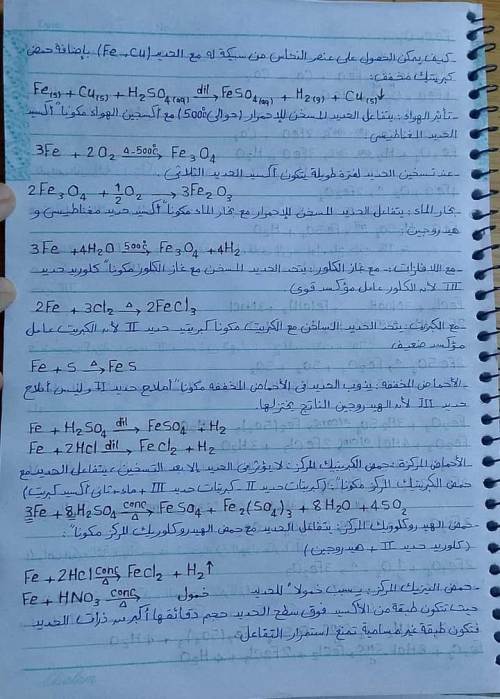 - كيف يمكن الحصول على عنصر النحاس من سبيكة له مع الحديد (Fe, Cu) بإضافة حمض
كبريتيك مخفف:
Fe(s) + Cu(s) + H2SO4(aq) dil→ FeSO4(aq) + H2(g) + Cu(s)↓
- تأثير الهواء: يتفاعل الحديد المسخن للإحمرار (حوالي 500°c) مع أكسجين الهواء مكوناً "أكسيد
الحديد المغناطيسي:
3Fe + 2O2 Δ-500°c→ Fe3O4
- عند تسخين الحديد لفترة طويلة يتكون أكسيد الحديد الثلاثي:
2Fe3O4 + 1/2 O2 → 3Fe2O3
- بخار الماء: يتفاعل الحديد المسخن للإحمرار مع بخار الماء مكوناً "أكسيد حديد مغناطيسي و
هيدروجين:
3Fe + 4H2O 500°c→ Fe3O4 + 4H2
- مع اللافلزات:- مع غاز الكلور: يتحد الحديد المسخن مع غاز الكلور مكوناً "كلوريد حديد
III لأن الكلور عامل مؤكسد قوى)
2Fe + 3Cl2 Δ→ 2FeCl3
- مع الكبريت: يتحد الحديد الساخن مع الكبريت مكوناً كبريتيد حديد II لأن الكبريت عامل
مؤكسد ضعيف
Fe + S Δ→ FeS
- الأحماض المخففة: يذوب الحديد في الأحماض المخففة مكوناً "أملاح حديد II وليس أملاح
حديد III لأن الهيدروجين الناتج يختزلها.
Fe + H2SO4 dil→ FeSO4 + H2
Fe + 2HCl dil→ FeCl2 + H2
- الأحماض المركزة: حمض الكبريتيك المركز: لا يؤثر في الحديد إلا بعد التسخين، يتفاعل الحديد مع
حمض الكبريتيك المركز مكوناً": (كبريتات حديد II - كبريتات حديد III + ماء + ثاني أكسيد كبريت)
3Fe + 8H2SO4 conc Δ→ FeSO4 + Fe2(SO4)3 + 8H2O + 4SO2
- حمض الهيدروكلوريك المركز: يتفاعل الحديد مع حمض الهيدروكلوريك المركز مكوناً":
(كلوريد حديد II + هيدروجين)
Fe + 2HCl conc Δ→ FeCl2 + H2↑
Fe + HNO3 conc Δ→ خمول
- حمض النيتريك المركز: يسبب خمولاً "للحديد
حيث تتكون طبقة من الأكسيد فوق سطح الحديد حجم دقائقها أكبر من ذرات الحديد
فتكون طبقة غير مسامية تمنع استمرار التفاعل.